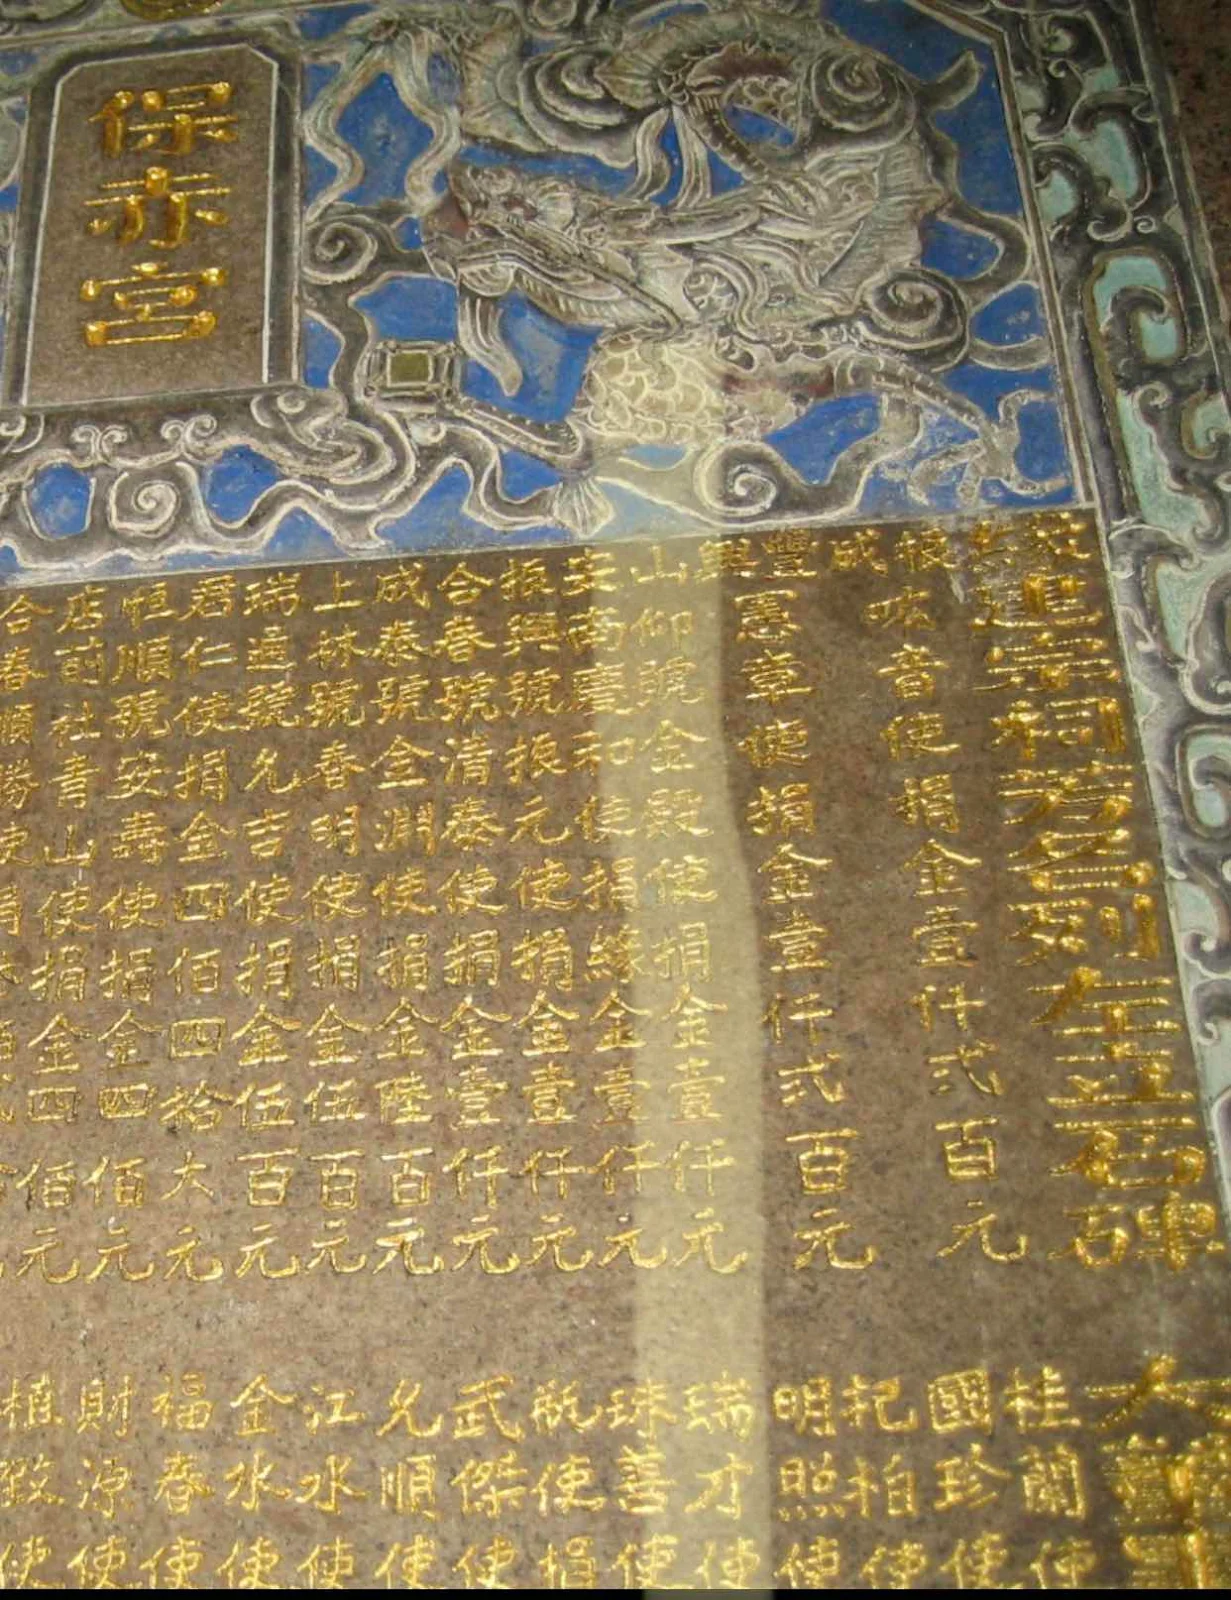 保赤宮
進宗祠芳名列左立石碑
振成豐興
音使捐金壹仟弍百元
憲章使捐金壹仟弍百元
山仰號金殿使捐金壹仟元
安南慶和使捐緣金壹仟元
振興號振元使捐金壹仟元
合春號清泰使捐金壹仟元
成泰號全渊使捐金陸百元
上林號春明使捐金伍百元
瑞適號允吉使捐金伍百元
君仁使捐金四佰四拾大元
恒順號安壽使捐金四佰元
店前社青山使捐金四佰元
合春順勝使
桂蘭使
國珍使
杞柏使
明照使
瑞才使
珠善使
航使捐
武傑使
允順使
江水使
金水使
福春使
財源使
植致使